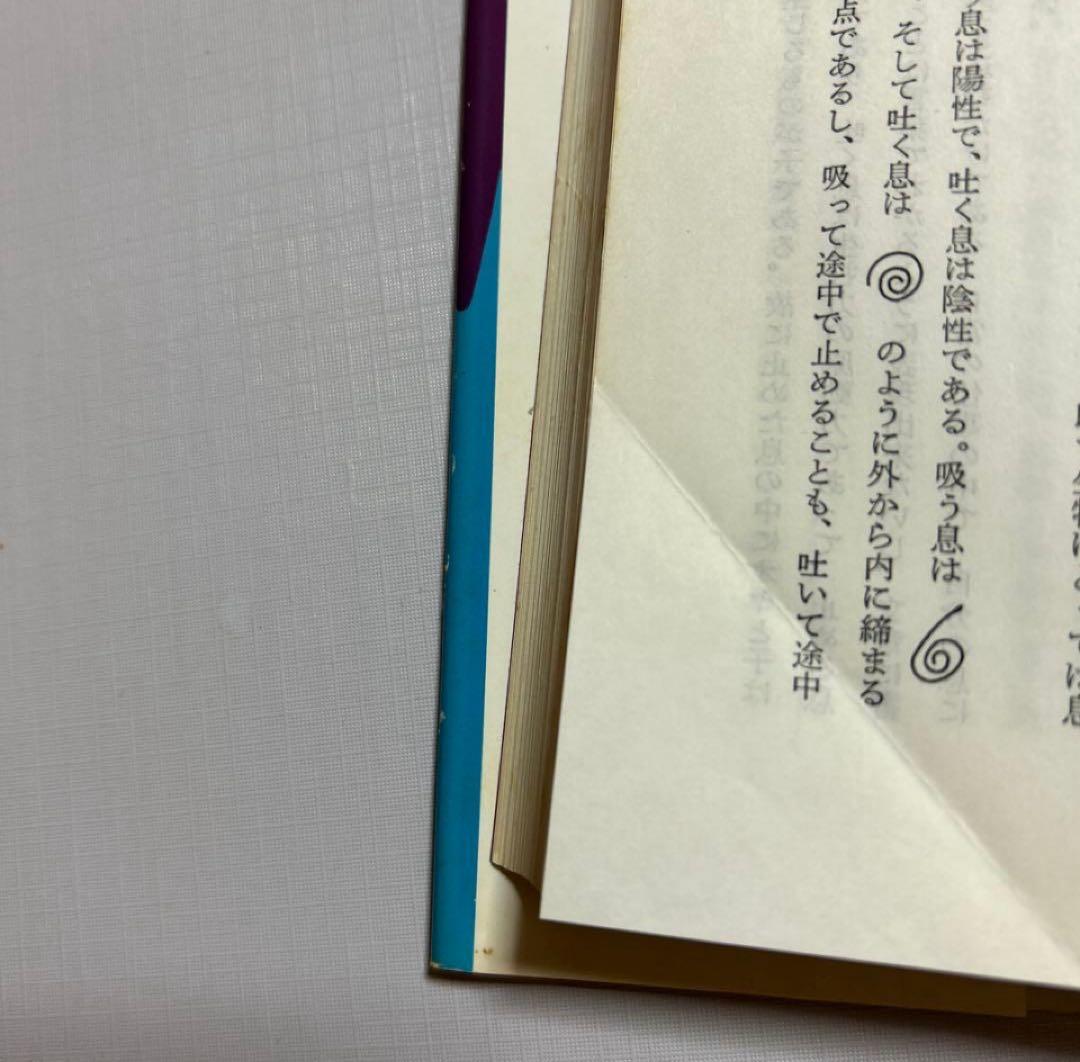 息は陽性で、吐く息は陰性である。吸う息は
そして吐く息は のように外から内に締まる
点であるし、吸って途中で止めることも、吐いて途中